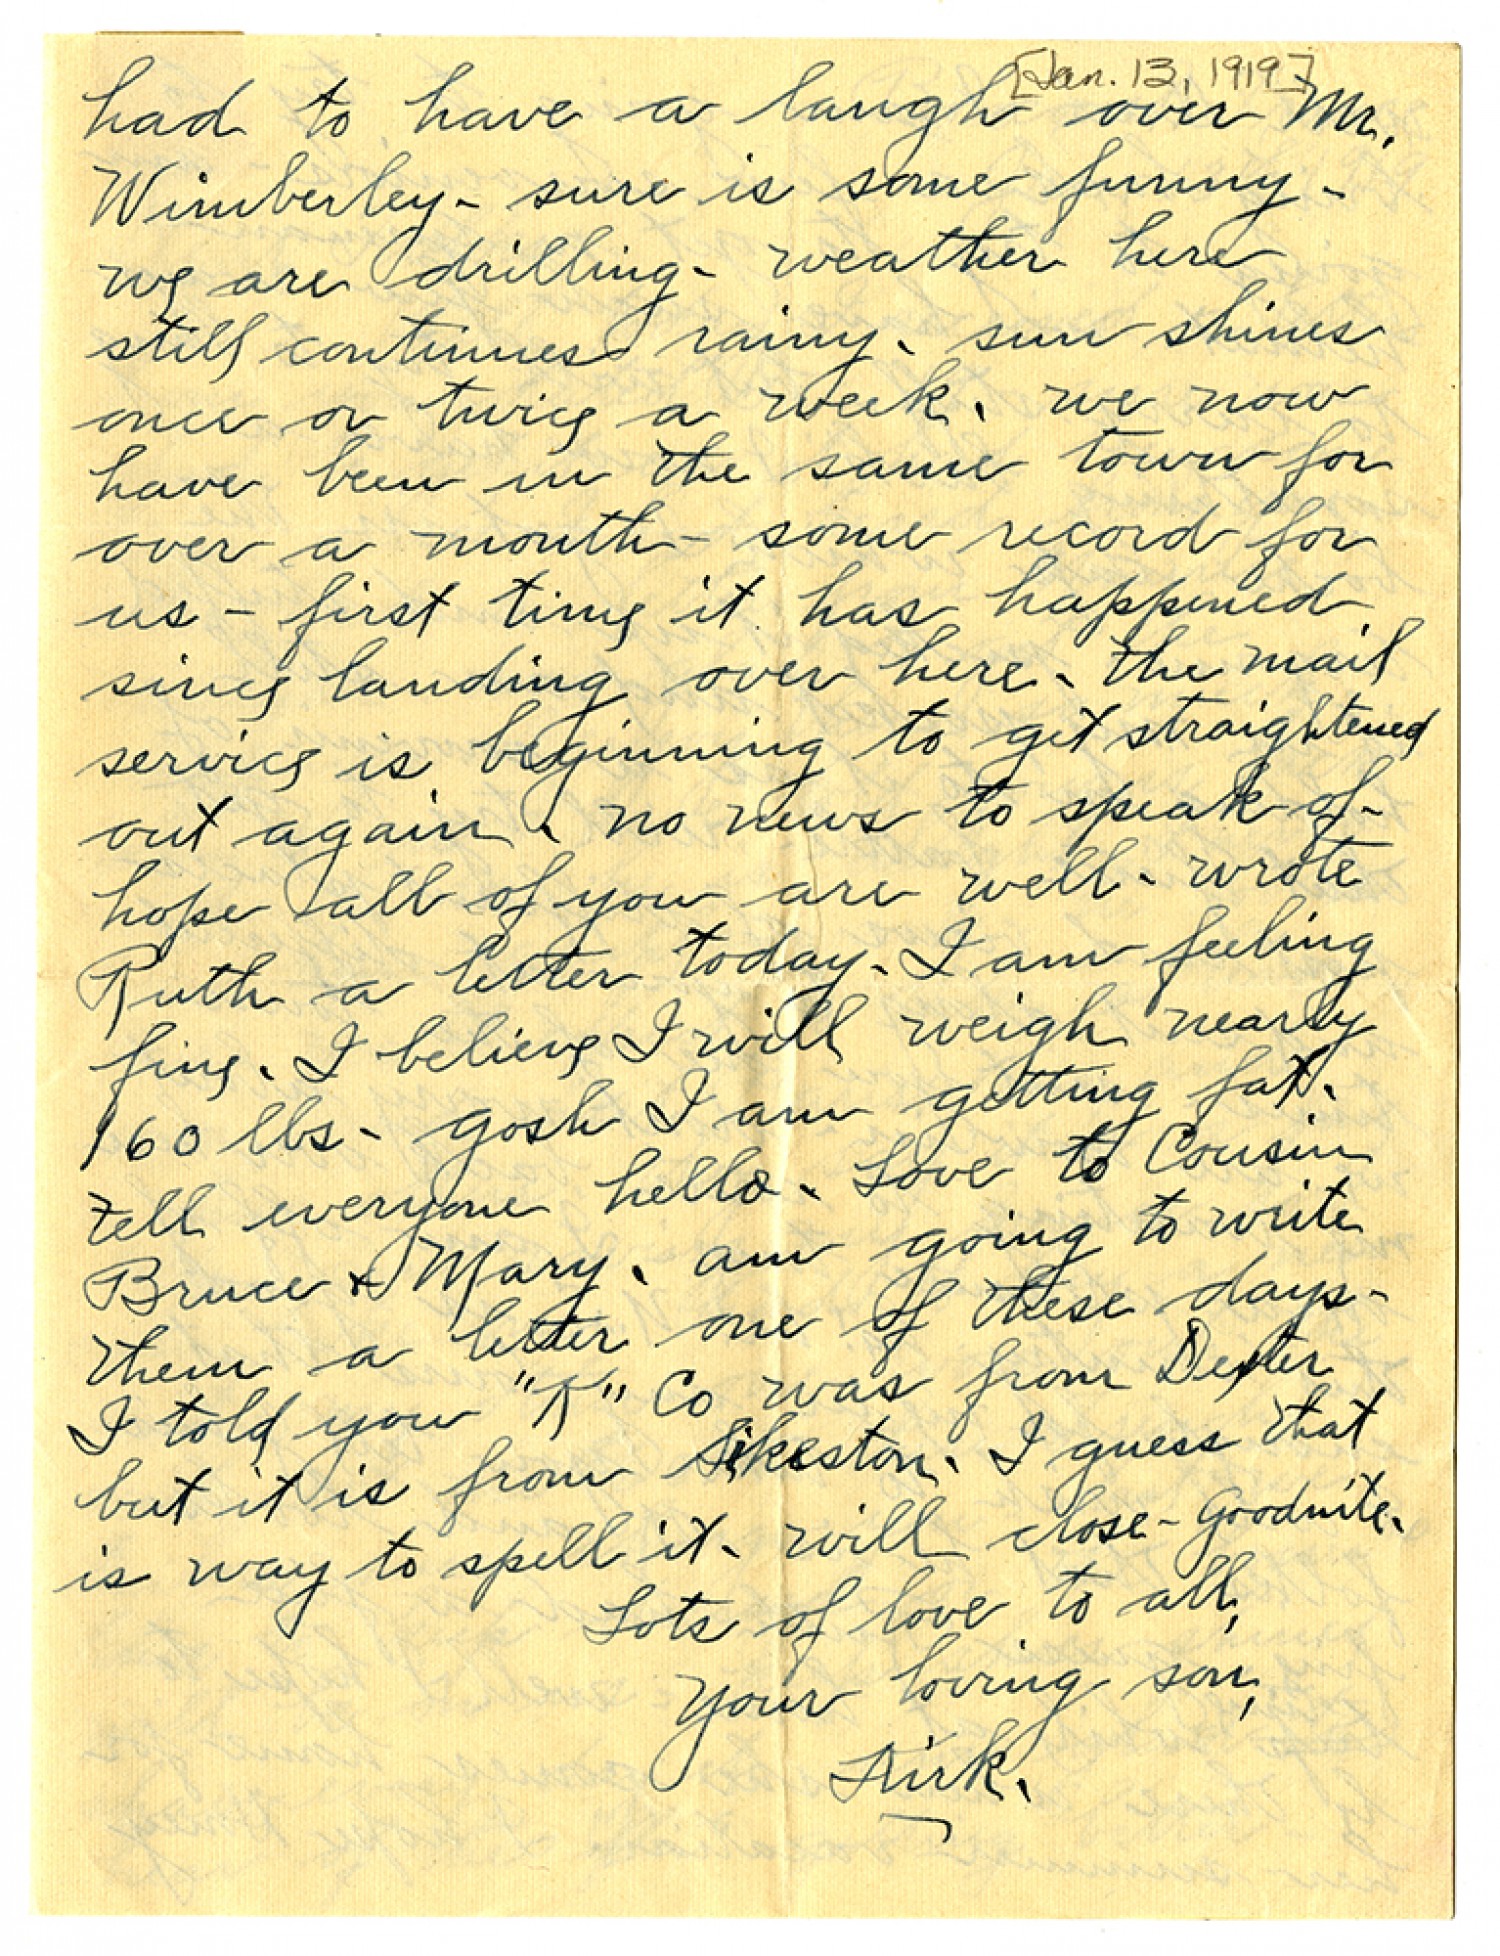 [Jan. 13, 1919]
had to have a laugh over Mr.
Wimberley - sure is some funny -
we are drilling - weather here
still continues rainy. sun shines
once or twice a week. we now
have been in the same town for
over a month - some record for
us - first time it has happened
since landing over here. the mail
service is beginning to get straightened
out again. no news to speak of -
hope all of you are well. wrote
Ruth a letter today. I am feeling
fine. I believe I will weigh nearly
160 lbs - gosh I am getting fat.
tell everyone hello. Love to Cousin
Bruce + Mary. am going to write
them a letter one of these days -
I told you "K" Co was from Dexter
but it is from Sikeston. I guess that
is way to spell it. will close - Goodnite.
Lots of love to all,
Your loving son,
Kirk.